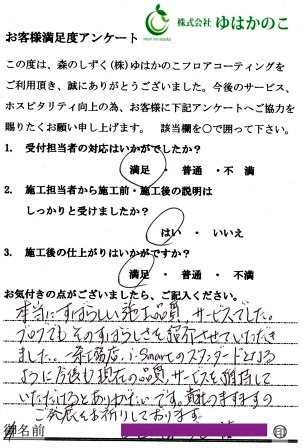 株式会社 ゆはかのこ
お客様満足度アンケート
この度は、森のしずく(株)ゆはかのこフロアコーティングを
ご利用頂き、誠にありがとうございました。今後のサービス、
ホスピタリティ向上の為、お客様に下記アンケートへご協力を
賜りたくお願い申し上げます。 該当欄を○で囲って下さい。
1. 受付担当者の対応はいかがでしたか?
満足 ・ 普通 ・ 不満
2. 施工担当者から施工前・施工後の説明は
しっかりと受けましたか?
はい ・ いいえ
3. 施工後の仕上がりはいかがですか?
満足 ・ 普通 ・ 不満
お気付きの点がございましたら、ご記入ください。
本当にすばらしい施工品質、サービスでした。
ブログでもそのすばらしさを紹介させていただき
ました。一条工務店、i-smartのスタンダードとなる
ように今後も現在の品質、サービスを維持して
いただけるとありがたいです。貴社のますますの
ご発展をお祈りしております。
御名前 印